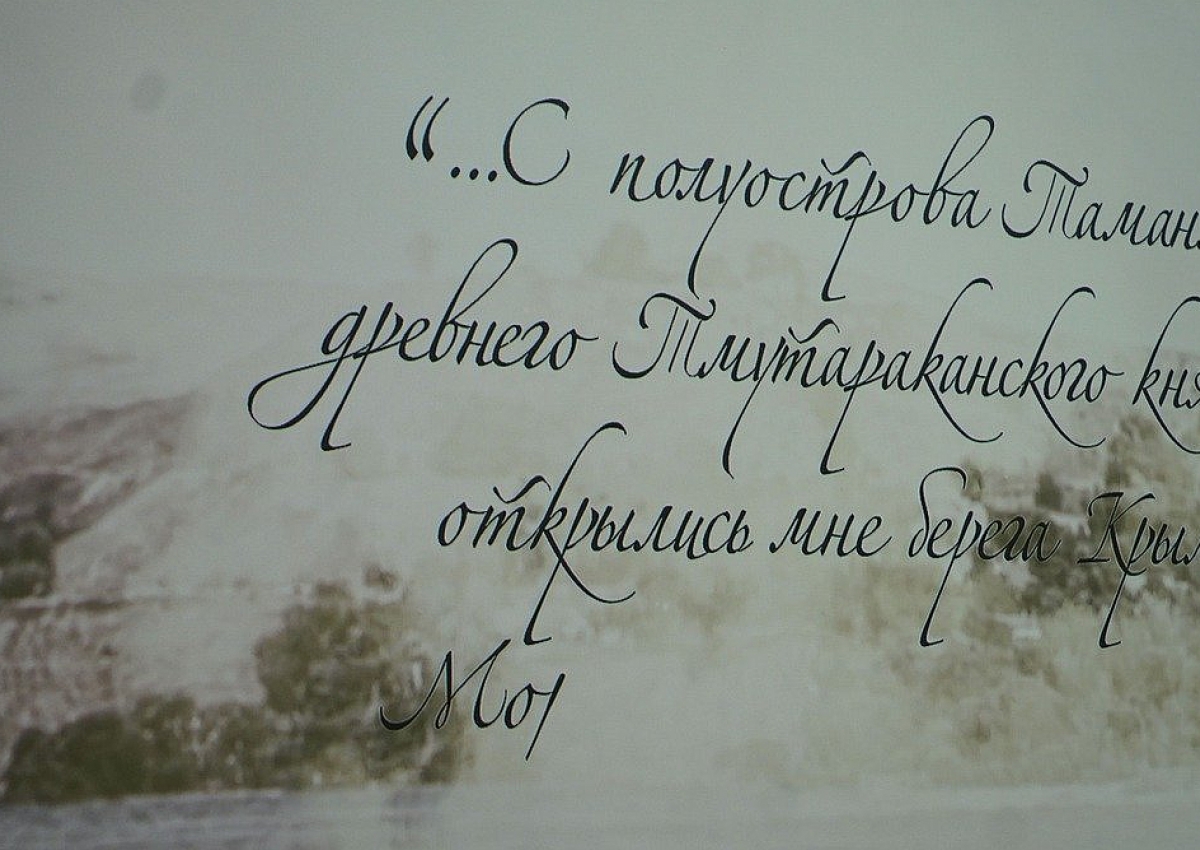 “...С полуострова Таман
древнего Тмутараканского кня
открылись мне берега Крым
Мор